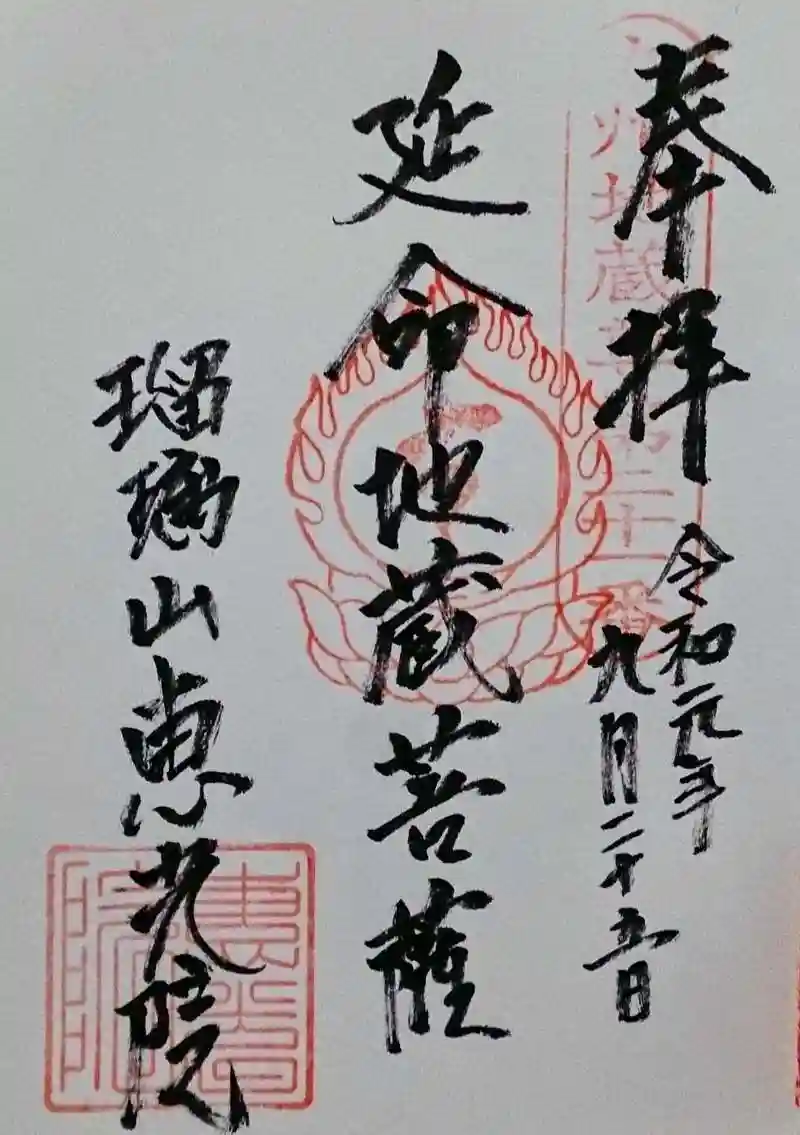 奉拝
令和元年
九月二十五日
州地蔵尊第二十一番
延命地蔵菩薩
瑠璃山恵光院
恵光院